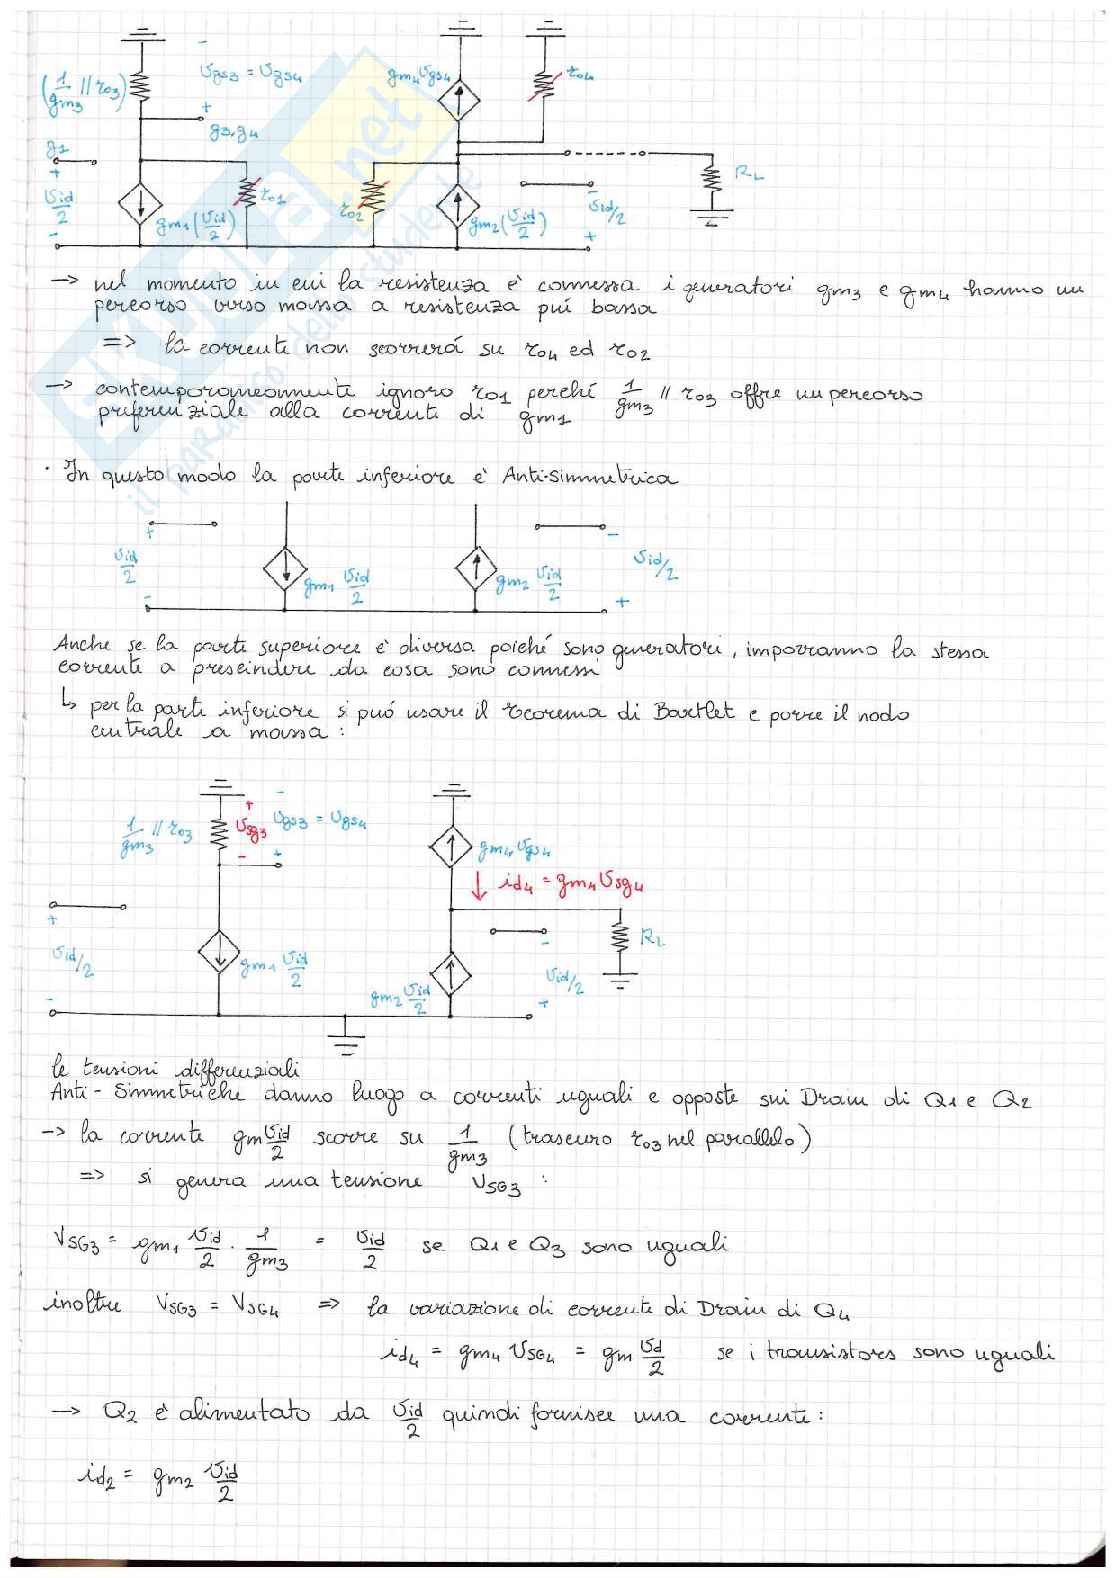 (1/gm3 // ro3)
vgs3 = vgs4
-
+
g3,g4
gm4vgs4
ro4
g1
+
vid/2
-
gm1(vid/2)
ro1
ro2
gm2(vid/2)
-
vid/2
+
RL
→ nel momento in cui la resistenza è connessa i generatori gm3 e gm4 hanno un
percorso verso massa a resistenza piú bassa
=> la corrente non scorrerá su ro4 ed ro2
→ contemporaneamente ignoro ro1 perché 1/gm3 // ro3 offre un percorso
preferenziale alla corrente di gm1
· In questo modo la parte inferiore è Anti-Simmetrica
+
vid/2
-
gm1 vid/2
gm2 vid/2
-
vid/2
+
Anche se la parte superiore è diversa poiché sono generatori, imporranno la stessa
corrente a prescindere da cosa sono connessi
↳ per la parte inferiore si puó usare il teorema di Bartlet e porre il nodo
centrale a massa:
1/gm3 // ro3
+
vsg3
-
-
vgs3 = vgs4
+
gm4vgs4
↓ id4 = gm4 vsg4
+
vid/2
-
gm1 vid/2
gm2 vid/2
-
vid/2
+
RL
le tensioni differenziali
Anti-Simmetriche danno luogo a correnti uguali e opposte sui Drain di Q1 e Q2
→ la corrente gm vid/2 scorre su 1/gm3 (trascuro ro3 nel parallelo)
=> si genera una tensione VSG3 :
VSG3 = gm1 vid/2 · 1/gm3 = vid/2 se Q1 e Q3 sono uguali
inoltre VSG3 = VSG4 => la variazione di corrente di Drain di Q4
id4 = gm4 VSG4 = gm vd/2 se i transistores sono uguali
→ Q2 è alimentato da vid/2 quindi fornisce una corrente:
id2 = gm2 vid/2